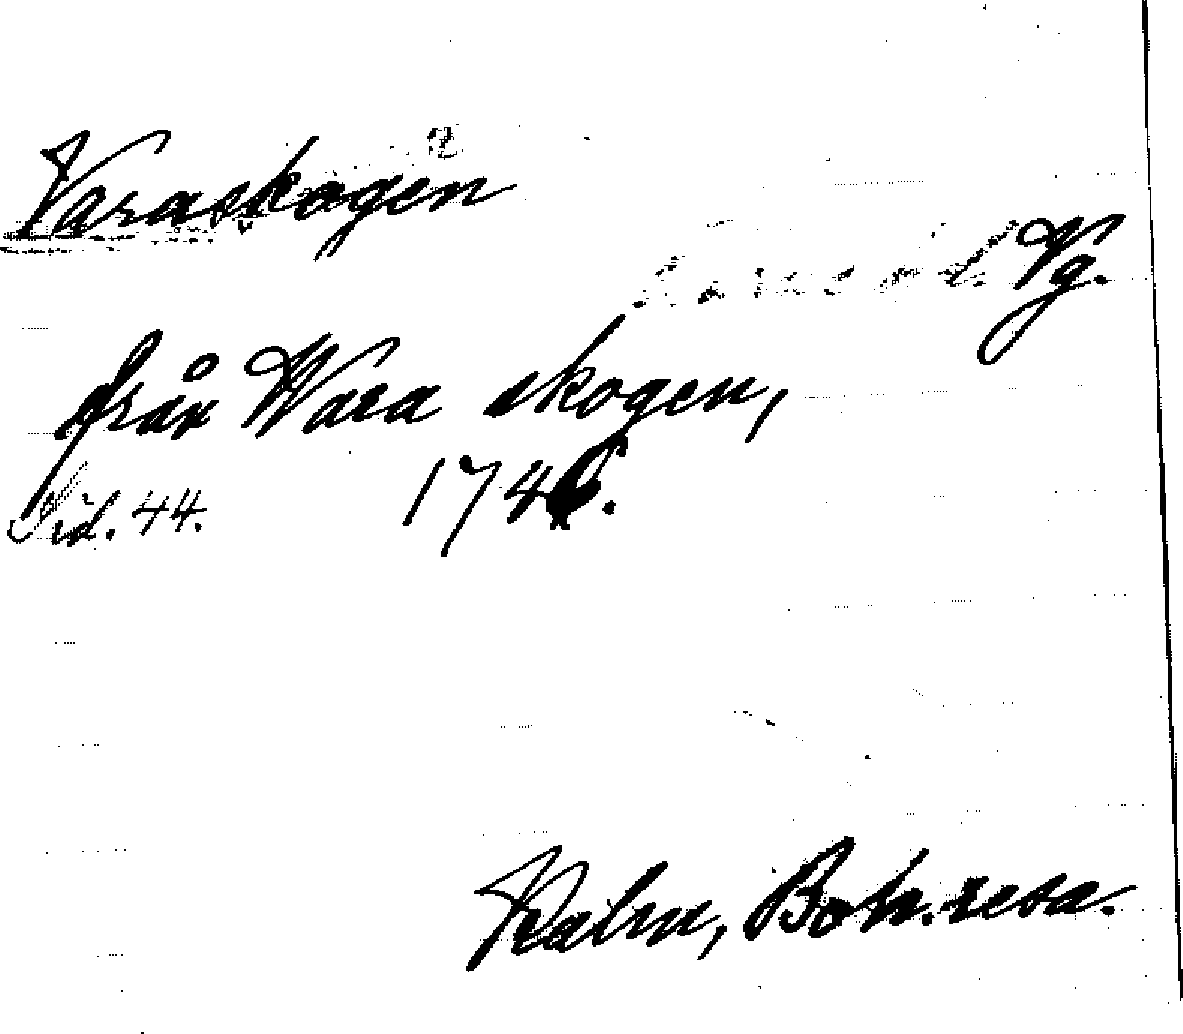 Varaskogen
Vg.
från Wara skogen,
Sid. 44. 174
Kalm, Boh. resa.